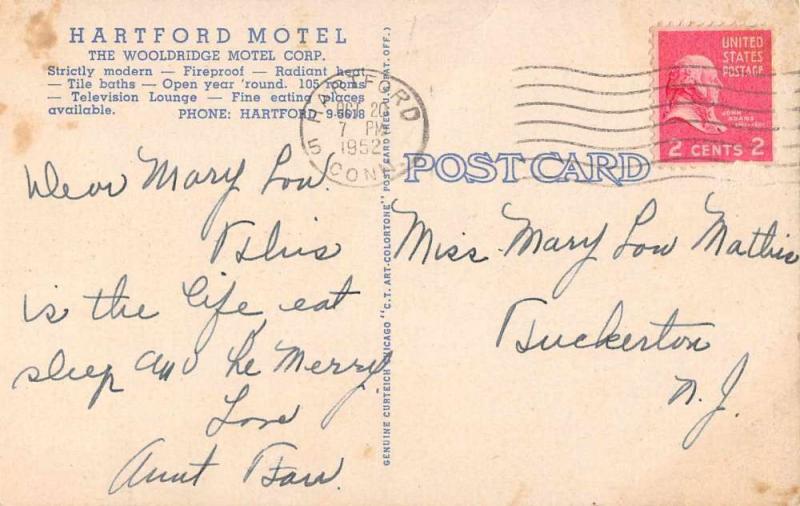 HARTFORD MOTEL
THE WOOLDRIDGE MOTEL CORP.
Strictly modern — Fireproof — Radiant heat
— Tile baths — Open year 'round. 105 rooms
— Television Lounge — Fine eating places
available. PHONE: HARTFORD 9-5618
HARTFORD
5
OCT 20
7 PM
1952
CONN
UNITED
STATES
POSTAGE
JOHN
ADAMS
2 CENTS 2
POST CARD
GENUINE CURTEICH CHICAGO "C.T. ART-COLORTONE" POST CARD (REG. U.S. PAT. OFF.)
Dear Mary Lou.
This
is the life eat
sleep and be Merry
Love
Aunt
Miss Mary Lou Mathis
Tuckerton
N. J.